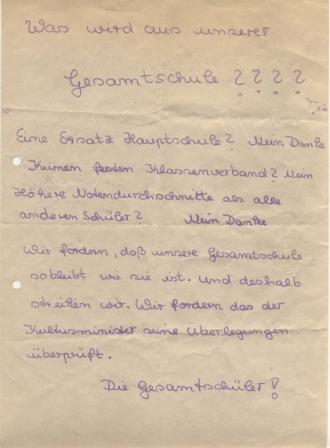 Was wird aus unserer
Gesamtschule ? ? ? ?
Eine Ersatz Hauptschule? Nein Danke
Keinen festen Klassenverband? Nein
Höhere Notendurchschnitte als alle
anderen Schüler? Nein Danke
Wir fordern, daß unsere Gesamtschule
sobleibt wie sie ist. Und deshalb
streiken wir. Wir fordern das der
Kultusminister seine Überlegungen
überprüft.
Die Gesamtschüler!